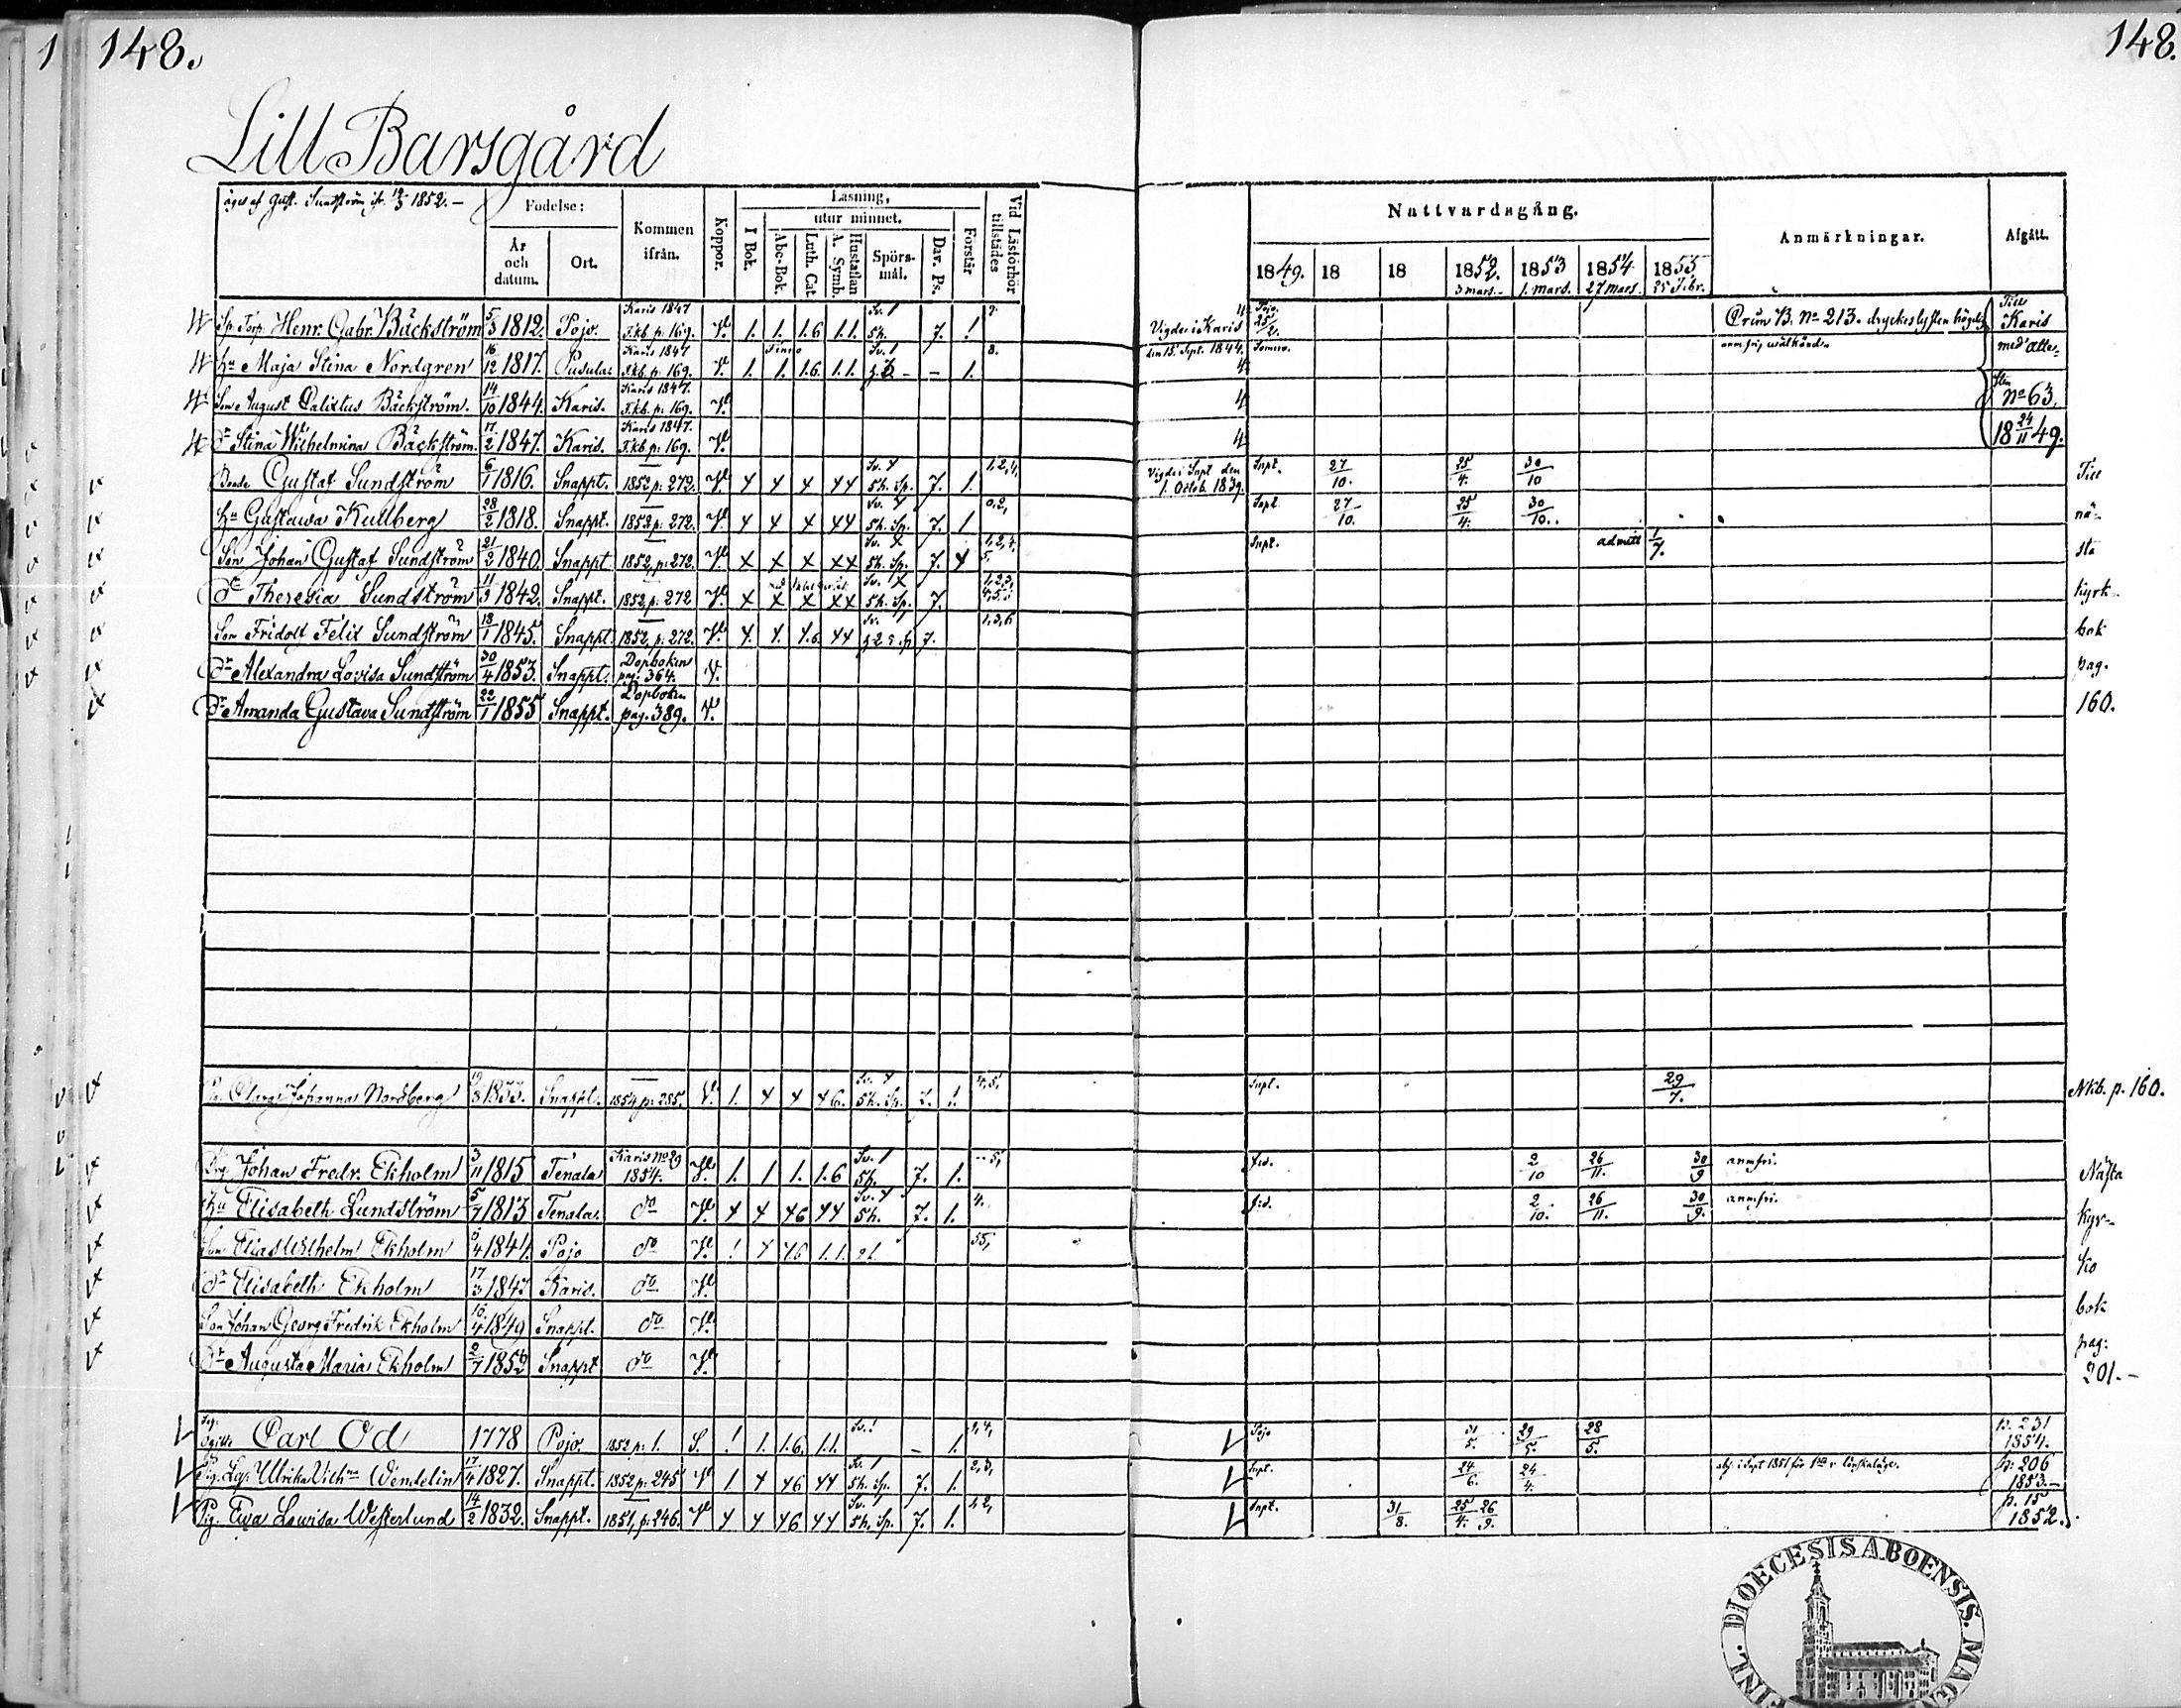 148.
148.
Lill Barsgård
äges af Gust. Sundström fr. 14/3 1852.–
Födelse:
År och datum.
Ort.
Kommen ifrån.
Koppor.
Läsning,
I Bok.
utur minnet.
Abc-Bok.
Luth. Cat.
Hustaflan A. Symb.
Spörsmål.
Dav. Ps.
Förstår
Vid Läsförhör tillstädes
Nattvardsgång.
1849. 18 18 1852. 1853 1854 1855
3 mars.- 1. mars. 27 mars. 25 Febr.
Anmärkningar.
Afgått.
Sp. Torp. Henr. Gabr. Bäckström 5/3 1812. Pojo. Karis 1847 F.kb. p. 169. V. 1. 1. 1.6 1.1. Sv. 1 5h. 7. 1. 2. Vigde i Karis Pojo. 25/2. Prim B. No 213. dryckeslysten högelig Till Karis
Hu Maja Stina Nordgren 16/12 1817. Pusula. Karis 1847 F.kb. p. 169. V. 1. Finno 1. 1.6. 1.1. Sv. 1 – – 1. 8. den 15. Sept. 1844. 4 anm. fri, wälkänd. med atte-
Son August Calixtus Bäckström. 14/10 1844. Karis. Karis 1847. F.kb. p. 169. V. 4 sten No 63.
Dr Stina Wilhelmina Bäckström. 17/2 1847. Karis. Karis 1847. F.kb. p. 169. V. 4 18 24/11 49.
Bonde Gustaf Sundström 6/1 1816. Snappt. 1852 p. 272. V. Sv. 5h. Sp. 7. 1. 1,2,4, Vigde i Snpt den 1. Octob. 1839. Snpt. 27/10. 25/4. 30/10 Till
Hu Gustawa Kullberg 28/2 1818. Snappt. 1852 p. 272. V. Sv. 5h. Sp. 7. 1 0,2, Snpt. 27/10. 25/4. 30/10.. nä-
Son Johan Gustaf Sundström 21/2 1840. Snappt 1852, p. 272. V. Sv. 5h. Sp. 7. 1,2,4. 5, Snpt. admitt 1/7. sta
Dr Theresia Sundström 11/9 1842. Snappt. 1852, p. 272 V. Sv. 5h. Sp. 7. 1,2,3, 4,5, kyrk-
Son Fridolf Felix Sundström 18/1 1845. Snappt. 1852, p. 272. V. Sv. 7. 1,3,6 bok
Dr Alexandra Lovisa Sundström 30/4 1853. Snappt. Dopboken pag. 364. V. pag.
Dr Amanda Gustava Sundström 22/1 1855 Snappt. Dopboken pag. 389. V. 160.
Clara Johanna Nordberg 19/8 1833. Snappt. 1854 p. 285. V. 1. Sv. 5h. Sp. 7. 1. 4,5, Snpt. 29/7. Nkb. p. 160.
Johan Fredr. Ekholm 3/11 1815 Tenala Karis No 29 1854. V. 1. 1 1. 1.6 Sv. 1 5h. 7. 1. --5, 2/10 26/11. 30/9 anmfri. Nästa
Hu Elisabeth Lundström 5/7 1813 Tenala. do V. Sv. 5h. 7. 1. 4. 2/10. 26/11. 30/9. anmfri. kyr-
Son Elias Wilhelm Ekholm 1844. Pojo do V. 1 1.1. 55, ko
Dr Elisabeth Ekholm 17/3 1847 Karis. do V.
Son Johan Georg Fredrik Ekholm 16/4 1849 Snappt. do V. bok
Dr Augusta Maria Ekholm 2/7 1852 Snappt do V. pag:
201.–
Carl Od 1778 Pojo. 1852 p. 1. S. 1 1. 1.6. 1.1. Sv. 1 – 1. 2,4, Pojo 31/5. 29/5. 28/5. p. 231 1854.
Pig. Ulrika Vilhna Wendelin 17/4 1827. Snappt. 1852 p: 245 V. 1 Sv. 1 5h. Sp. 7. 1. 2,3, Snpt. 24/6. 24/4. p: 206 1853.–
Pig. Eva Lowisa Westerlund 14/2 1832. Snappt. 1851, p: 246. V. Sv. 1 5h. Sp. 7. 1. 1,2, Snpt. 31/8. 25/4. 26/9. p. 15 1852.
FINL. DIOECESIS ABOENSIS. MAGN